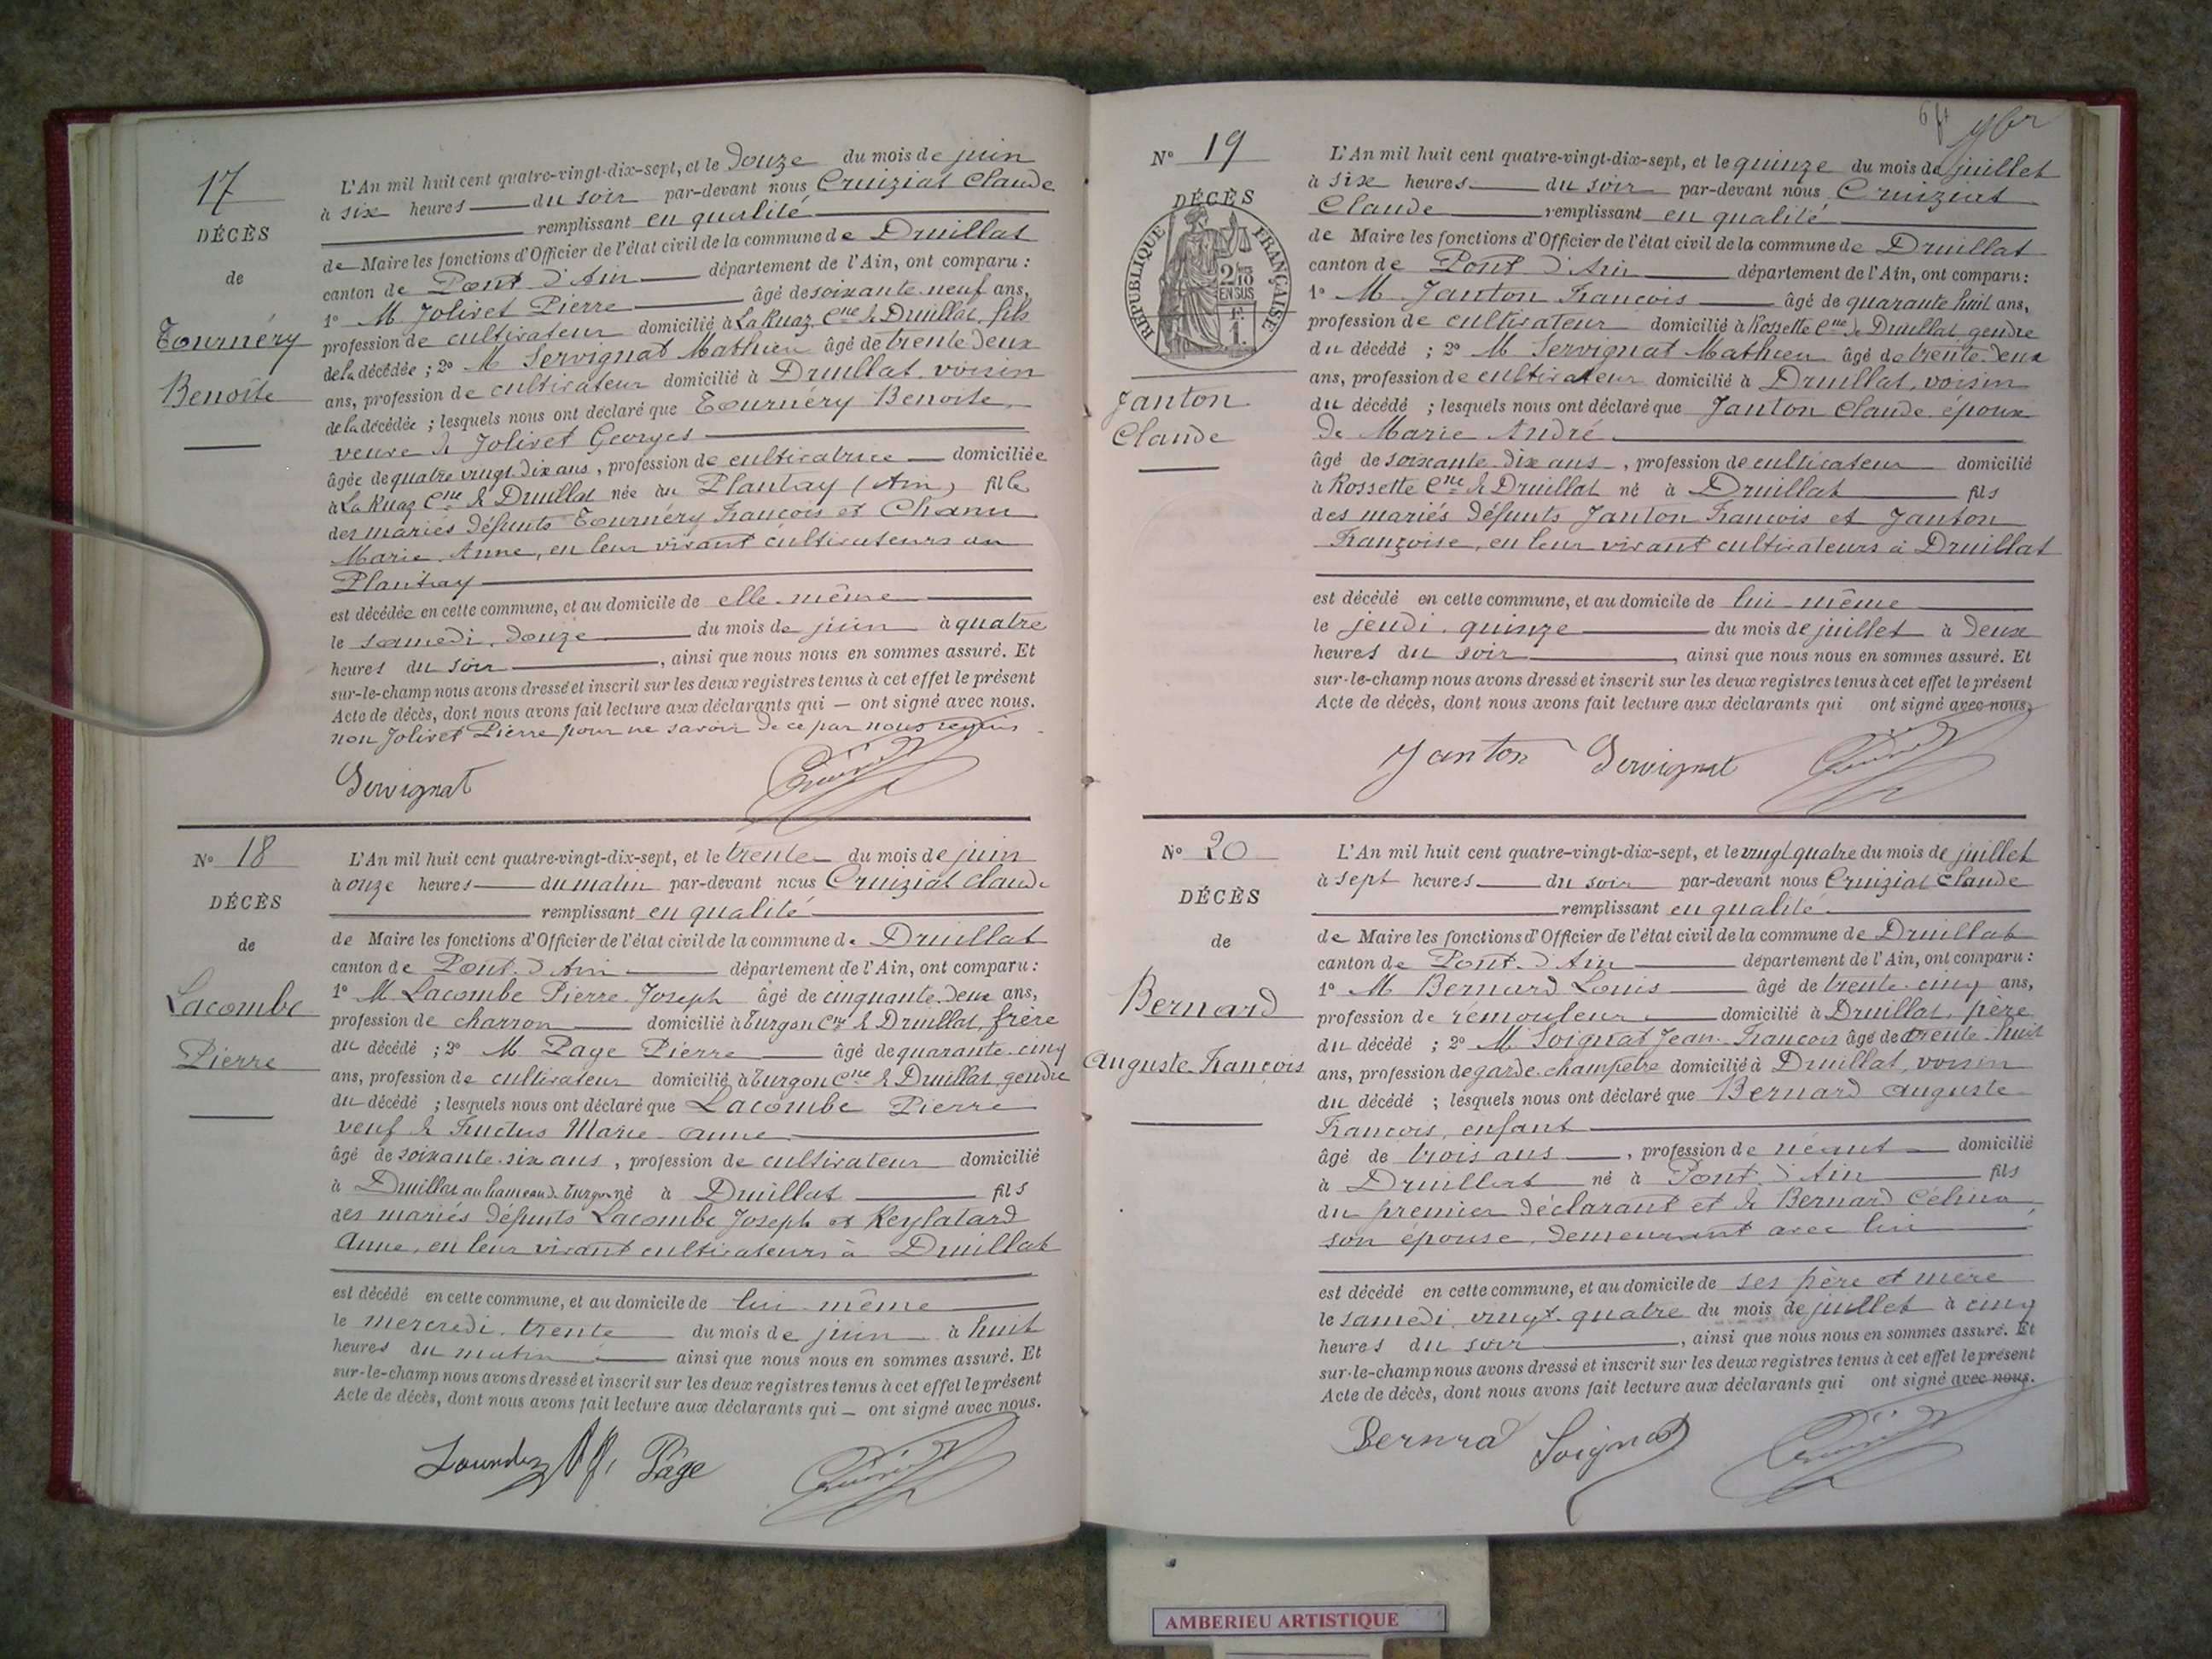 17
DÉCÈS
de
Tournéry
Benoîte
L'An mil huit cent quatre-vingt-dix-sept, et le Douze du mois de juin
à six heures du soir par-devant nous Cruiziat Claude
remplissant en qualité
de Maire les fonctions d'Officier de l'état civil de la commune de Druillat
canton de Pont d'Ain département de l'Ain, ont comparu :
1° M Jolivet Pierre âgé de soixante neuf ans,
profession de cultivateur domicilié à La Ruaz Cne de Druillat, fils
de la décédée ; 2° M Servignat Mathieu âgé de trente deux
ans, profession de cultivateur domicilié à Druillat, voisin
de la décédée ; lesquels nous ont déclaré que Tournéry Benoîte,
veuve de Jolivet Georges
âgée de quatre vingt dix ans, profession de cultivatrice domiciliée
à La Ruaz Cne de Druillat née au Plantay (Ain) fille
des mariés défunts Tournéry François et Chanu
Marie Anne, en leur vivant cultivateurs au
Plantay
est décédée en cette commune, et au domicile de elle-même
le samedi, douze du mois de juin à quatre
heures du soir, ainsi que nous nous en sommes assuré. Et
sur-le-champ nous avons dressé et inscrit sur les deux registres tenus à cet effet le présent
Acte de décès, dont nous avons fait lecture aux déclarants qui — ont signé avec nous.
non Jolivet Pierre pour ne savoir de ce par nous requis
Servignat
N° 18
DÉCÈS
de
Lacombe
Pierre
L'An mil huit cent quatre-vingt-dix-sept, et le trente du mois de juin
à onze heures du matin par-devant nous Cruiziat Claude
remplissant en qualité
de Maire les fonctions d'Officier de l'état civil de la commune de Druillat
canton de Pont d'Ain département de l'Ain, ont comparu :
1° M Lacombe Pierre Joseph âgé de cinquante deux ans,
profession de charron domicilié à Turgon Cne de Druillat, frère
du décédé ; 2° M Page Pierre âgé de quarante cinq
ans, profession de cultivateur domicilié à Turgon Cne de Druillat, gendre
du décédé ; lesquels nous ont déclaré que Lacombe Pierre
veuf de Marie Anne
âgé de soixante six ans, profession de cultivateur domicilié
à Druillat au hameau de Turgon né à Druillat fils
des mariés défunts Lacombe Joseph et Reylatard
Anne, en leur vivant cultivateurs à Druillat
est décédé en cette commune, et au domicile de lui-même
le mercredi, trente du mois de juin à huit
heures du matin ainsi que nous nous en sommes assuré. Et
sur-le-champ nous avons dressé et inscrit sur les deux registres tenus à cet effet le présent
Acte de décès, dont nous avons fait lecture aux déclarants qui — ont signé avec nous.
Page
N° 19
DÉCÈS
RÉPUBLIQUE FRANÇAISE
2/10
EN SUS
1
Janton
Claude
L'An mil huit cent quatre-vingt-dix-sept, et le quinze du mois de juillet
à six heures du soir par-devant nous Cruiziat
Claude remplissant en qualité
de Maire les fonctions d'Officier de l'état civil de la commune de Druillat
canton de Pont d'Ain département de l'Ain, ont comparu :
1° M Janton François âgé de quarante huit ans,
profession de cultivateur domicilié à Rossette Cne de Druillat, gendre
du décédé ; 2° M Servignat Mathieu âgé de trente deux
ans, profession de cultivateur domicilié à Druillat, voisin
du décédé ; lesquels nous ont déclaré que Janton Claude époux
de Marie André
âgé de soixante dix ans, profession de cultivateur domicilié
à Rossette Cne de Druillat né à Druillat fils
des mariés défunts Janton François et Janton
Françoise, en leur vivant cultivateurs à Druillat
est décédé en cette commune, et au domicile de lui-même
le jeudi, quinze du mois de juillet à deux
heures du soir, ainsi que nous nous en sommes assuré. Et
sur-le-champ nous avons dressé et inscrit sur les deux registres tenus à cet effet le présent
Acte de décès, dont nous avons fait lecture aux déclarants qui ont signé avec nous.
Janton Servignat
N° 20
DÉCÈS
de
Bernard
Auguste François
L'An mil huit cent quatre-vingt-dix-sept, et le vingt quatre du mois de juillet
à sept heures du soir par-devant nous Cruiziat Claude
remplissant en qualité
de Maire les fonctions d'Officier de l'état civil de la commune de Druillat
canton de Pont d'Ain département de l'Ain, ont comparu :
1° M Bernard Louis âgé de trente cinq ans,
profession de rémouleur domicilié à Druillat, père
du décédé ; 2° M Soignat Jean François âgé de trente huit
ans, profession de garde-champêtre domicilié à Druillat, voisin
du décédé ; lesquels nous ont déclaré que Bernard Auguste
François, enfant
âgé de trois ans, profession de néant domicilié
à Druillat né à Pont d'Ain fils
du premier déclarant et de Bernard Célina,
son épouse, demeurant avec lui
est décédé en cette commune, et au domicile de ses père et mère
le samedi vingt quatre du mois de juillet à cinq
heures du soir, ainsi que nous nous en sommes assuré. Et
sur-le-champ nous avons dressé et inscrit sur les deux registres tenus à cet effet le présent
Acte de décès, dont nous avons fait lecture aux déclarants qui ont signé avec nous.
Bernard Soignat
AMBERIEU ARTISTIQUE